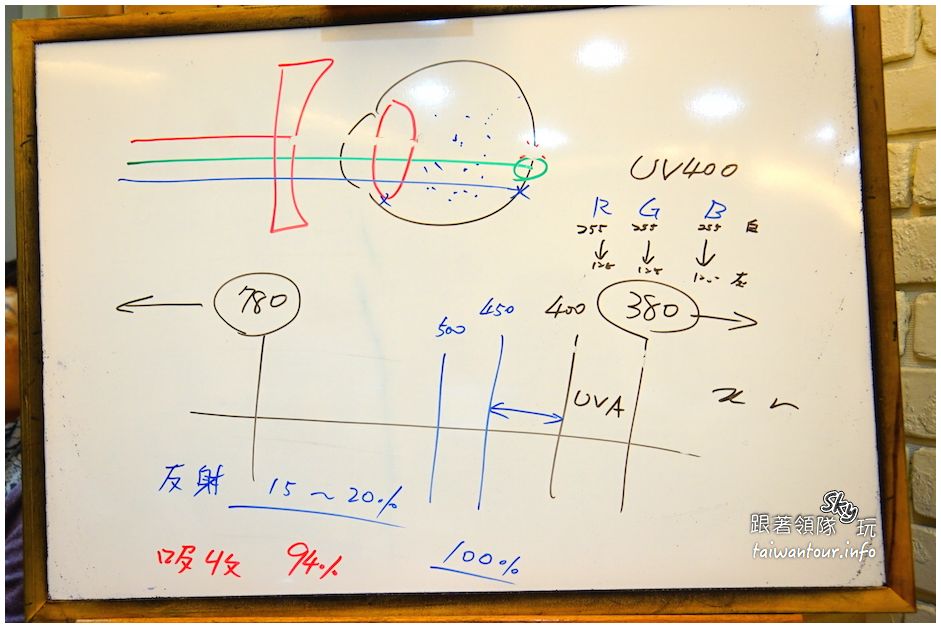 UV400
R G B
255 255 255 白
125 125 灰
780 500 450 400 380
UVA
反射 15~20%
吸收 94% 100%
跟著領隊Sky玩
taiwantour.info